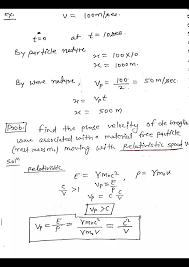 Ex. v = 100m/sec.
t=0 at t = 10sec.
By particle nature
x = 100x10
x = 1000m.
By wave nature, Vp = 100/2 = 50 m/sec.
x = Vpt
x = 500m
Prob: find the phase velocity of de broglie
wave associated with a material free particle
(rest mass mo) moving with relativistic speed v
Soln Relativistic E = γmoc² p = γmov
c/v > 1 Vp = E/p
Vp = c c/v
Vp > c
Vp = E/p = γmoc²/γmov = c²/v